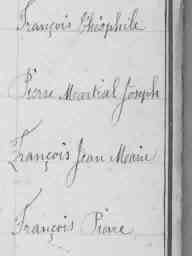 François Théophile
Pierre Martial Joseph
François Jean Marie
François Pierre